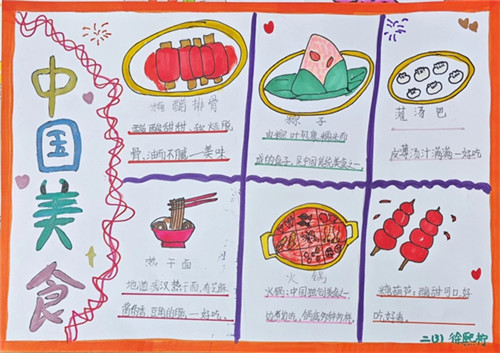 中国美食
糖醋排骨
酸酸甜甜、软烂脱
骨,油而不腻——美味
粽子
由粽叶包裹糯米而
成的粽子,是中国传统美食之一
灌汤包
皮薄汤汁满满—好吃
热干面
地道武汉热干面,有芝麻
酱的香,豆角的脆,一好吃。
火锅
火锅:中国独创美食,
边煮边吃,锅底多种多样。
糖葫芦:酸甜可口,好
吃,好看。
二(3) 徐熙柠